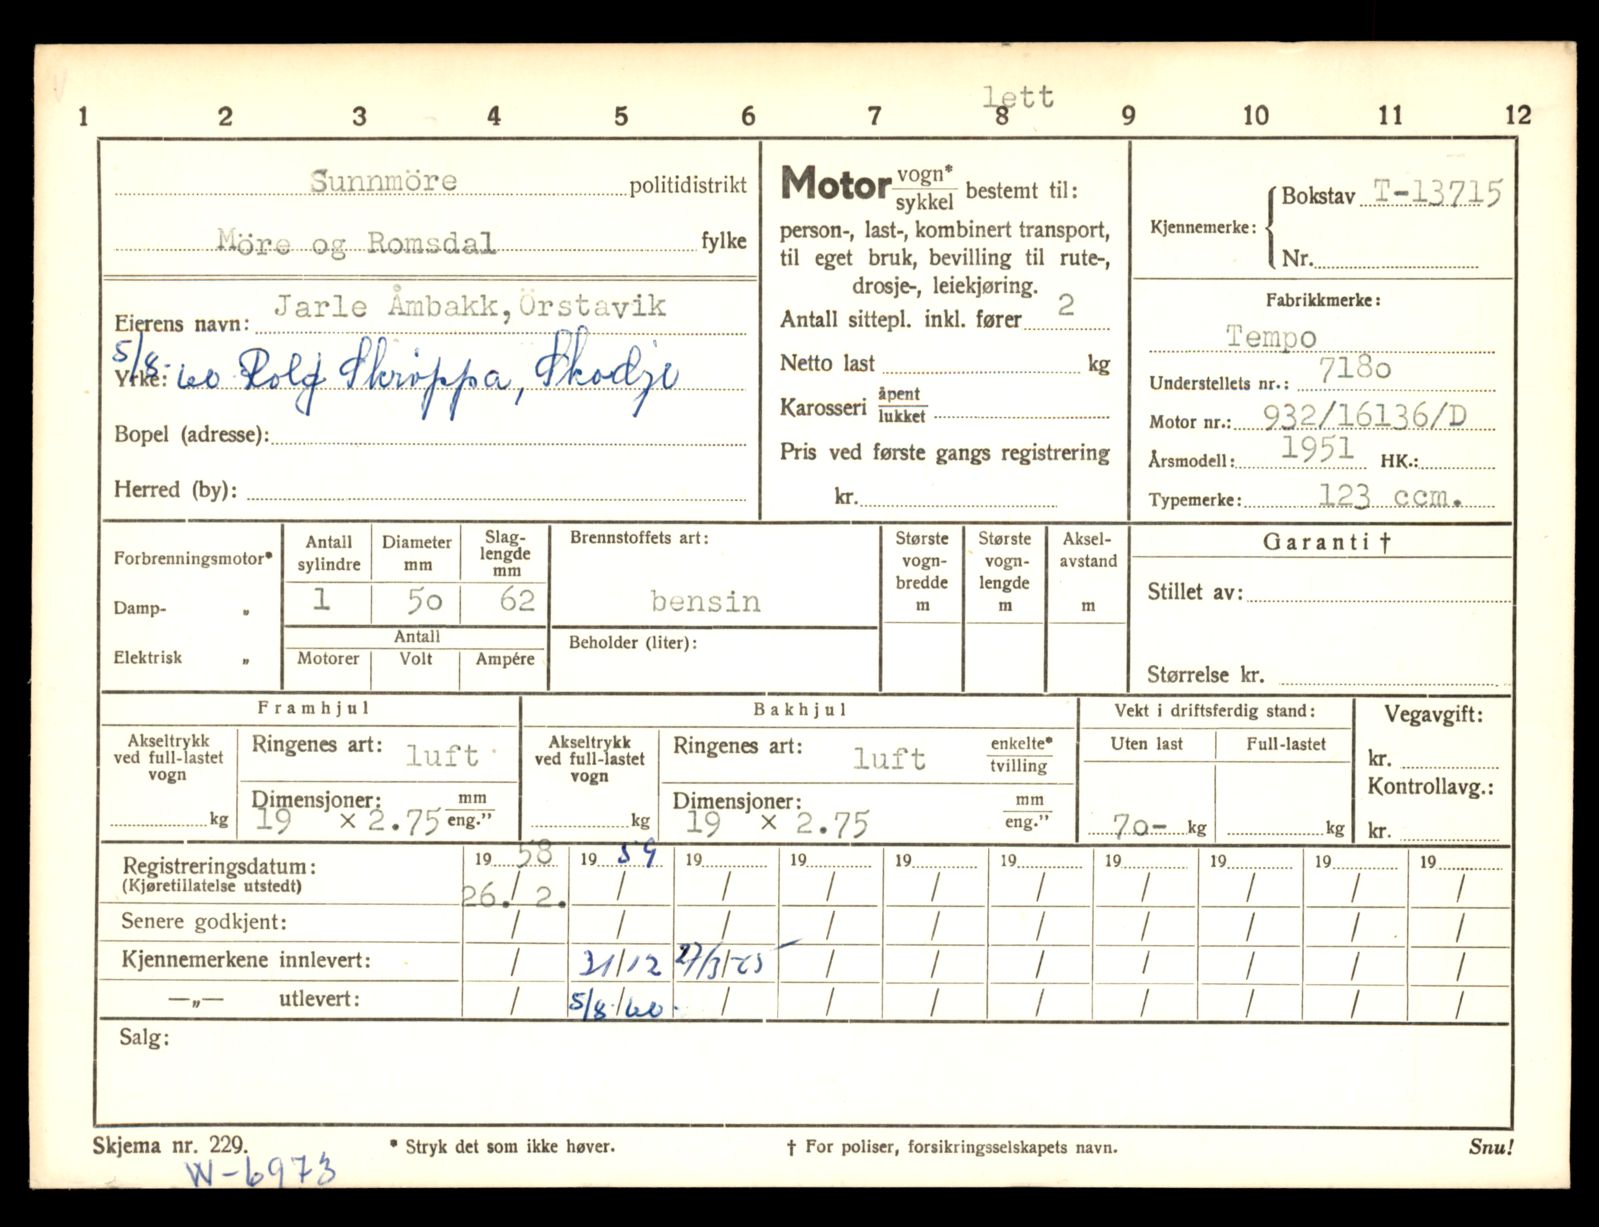 lett
1 2 3 4 5 6 7 8 9 10 11 12
Sunnmöre politidistrikt
Möre og Romsdal fylke
Eierens navn: Jarle Åmbakk, Örstavik
5/8-60 Rolf Skrøppa, Skodje
Yrke:
Bopel (adresse):
Herred (by):
Motor vogn*
sykkel bestemt til:
person-, last-, kombinert transport,
til eget bruk, bevilling til rute-,
drosje-, leiekjøring.
Antall sittepl. inkl. fører 2
Netto last kg
Karosseri åpent
lukket
Pris ved første gangs registrering
kr.
Kjennemerke: Bokstav T-13715
Nr.
Fabrikkmerke:
Tempo
Understellets nr.: 7180
Motor nr.: 932/16136/D
Årsmodell: 1951 HK.:
Typemerke: 123 ccm.
Forbrenningsmotor*
Damp- „
Elektrisk „
Antall
sylindre
1
Diameter
mm
50
Slag-
lengde
mm
62
Antall
Motorer Volt Ampére
Brennstoffets art:
bensin
Beholder (liter):
Største
vogn-
bredde
m
Største
vogn-
lengde
m
Aksel-
avstand
m
Garanti †
Stillet av:
Størrelse kr.
Framhjul
Akseltrykk
ved full-lastet
vogn
kg
Ringenes art: luft
Dimensjoner: mm
19 × 2.75 eng.”
Bakhjul
Akseltrykk
ved full-lastet
vogn
kg
Ringenes art: luft enkelte*
tvilling
Dimensjoner: mm
19 × 2.75 eng.”
Vekt i driftsferdig stand:
Uten last Full-lastet
70- kg kg
Vegavgift:
kr.
Kontrollavg.:
kr.
Registreringsdatum: 19 58 19 59 19 19 19 19 19 19 19 19
(Kjøretillatelse utstedt) 26./ 2. / / / / / / / / /
Senere godkjent: / / / / / / / / / /
Kjennemerkene innlevert: / 31/12 27/3/65 / / / / / / /
—„— utlevert: / 5/8/60. / / / / / / / /
Salg:
Skjema nr. 229. * Stryk det som ikke høver. † For poliser, forsikringsselskapets navn. Snu!
W-6973